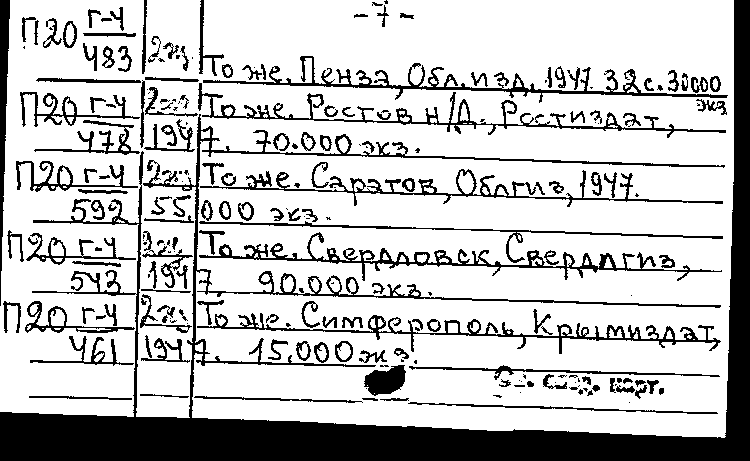 -7-
П20 Г-4/483 2экз То же. Пенза, Обл.изд., 1947 32с. 30000 экз
П20 Г-4/478 2экз То же. Ростов н/Д., Ростиздат,
1947. 70.000 экз.
П20 Г-4/592 2экз То же. Саратов, Облгиз, 1947.
55.000 экз.
П20 Г-4/543 2экз То же. Свердловск, Свердлгиз,
1947. 90.000 экз.
П20 Г-4/461 2экз То же. Симферополь, Крымиздат,
1947. 15.000 экз.
См. след. карт.